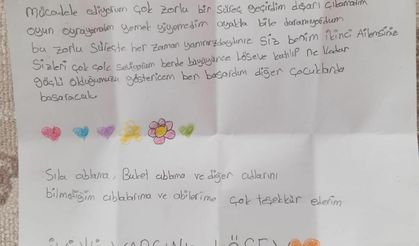 mücadele ediyorum çok zorlu bir süreç geçirdim dışarı çıkamadım
oyun oynayamadım yemek yiyemedim ayakta bile duramıyordum
bu zorlu süreçte her zaman yanımızdaydınız siz benim ikinci Ailemsiniz
Sizleri çok çok seviyorum bende büyüyünce lösev'e katılıp ne kadar
güçlü olduğumuzu göstericem ben başardım diğer çocuklarda
başaracak
Sıla ablama, Buket ablama ve diğer adlarını
bilmediğim ablalarıma ve abilerime çok teşekkür ederim